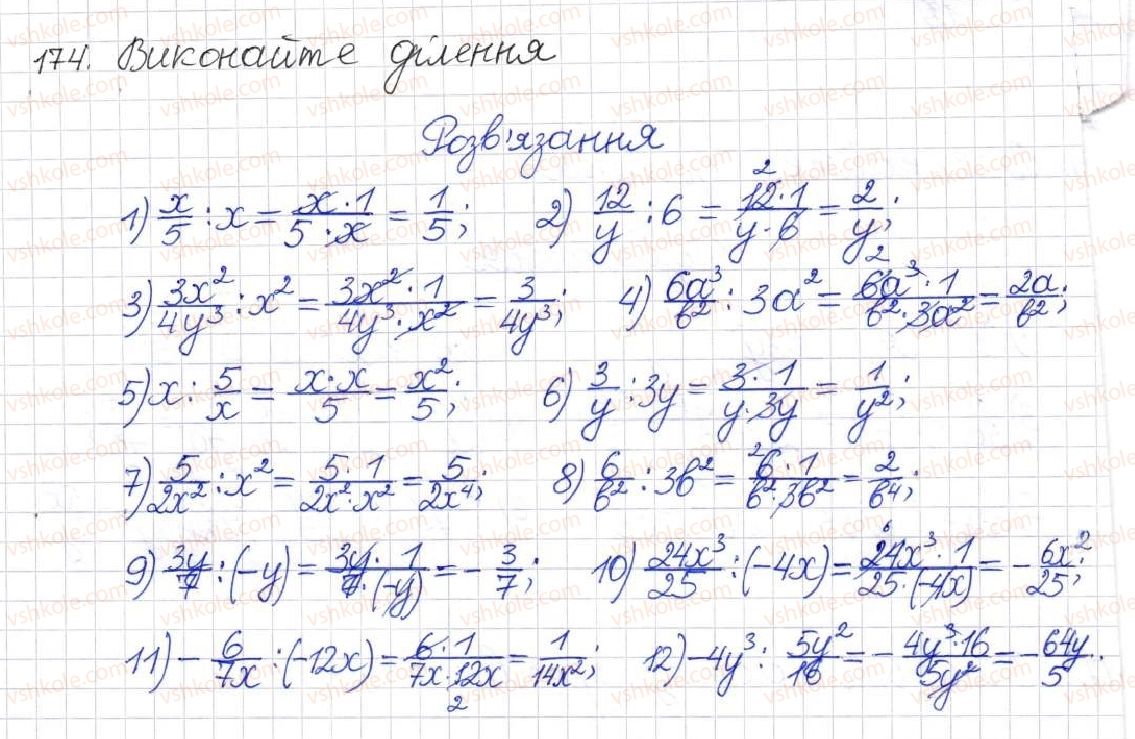 174. Виконайте ділення
Розв'язання
1) x/5 : x = x·1/5·x = 1/5; 2) 12/y : 6 = 12·1/y·6 = 2/y;
3) 3x²/4y³ : x² = 3x²·1/4y³·x² = 3/4y³; 4) 6a³/b² : 3a² = 6a³·1/b²·3a² = 2a/b²;
5) x : 5/x = x·x/5 = x²/5; 6) 3/y : 3y = 3·1/y·3y = 1/y²;
7) 5/2x² : x² = 5·1/2x²·x² = 5/2x⁴; 8) 6/b² : 3b² = 6·1/b²·3b² = 2/b⁴;
9) 3y/7 : (-y) = 3y·1/7·(-y) = -3/7; 10) 24x³/25 : (-4x) = 24x³·1/25·(-4x) = -6x²/25;
11) -6/7x : (-12x) = 6·1/7x·12x = 1/14x²; 12) -4y³ : 5y²/16 = -4y³·16/5y² = -64y/5.
vshkole.com